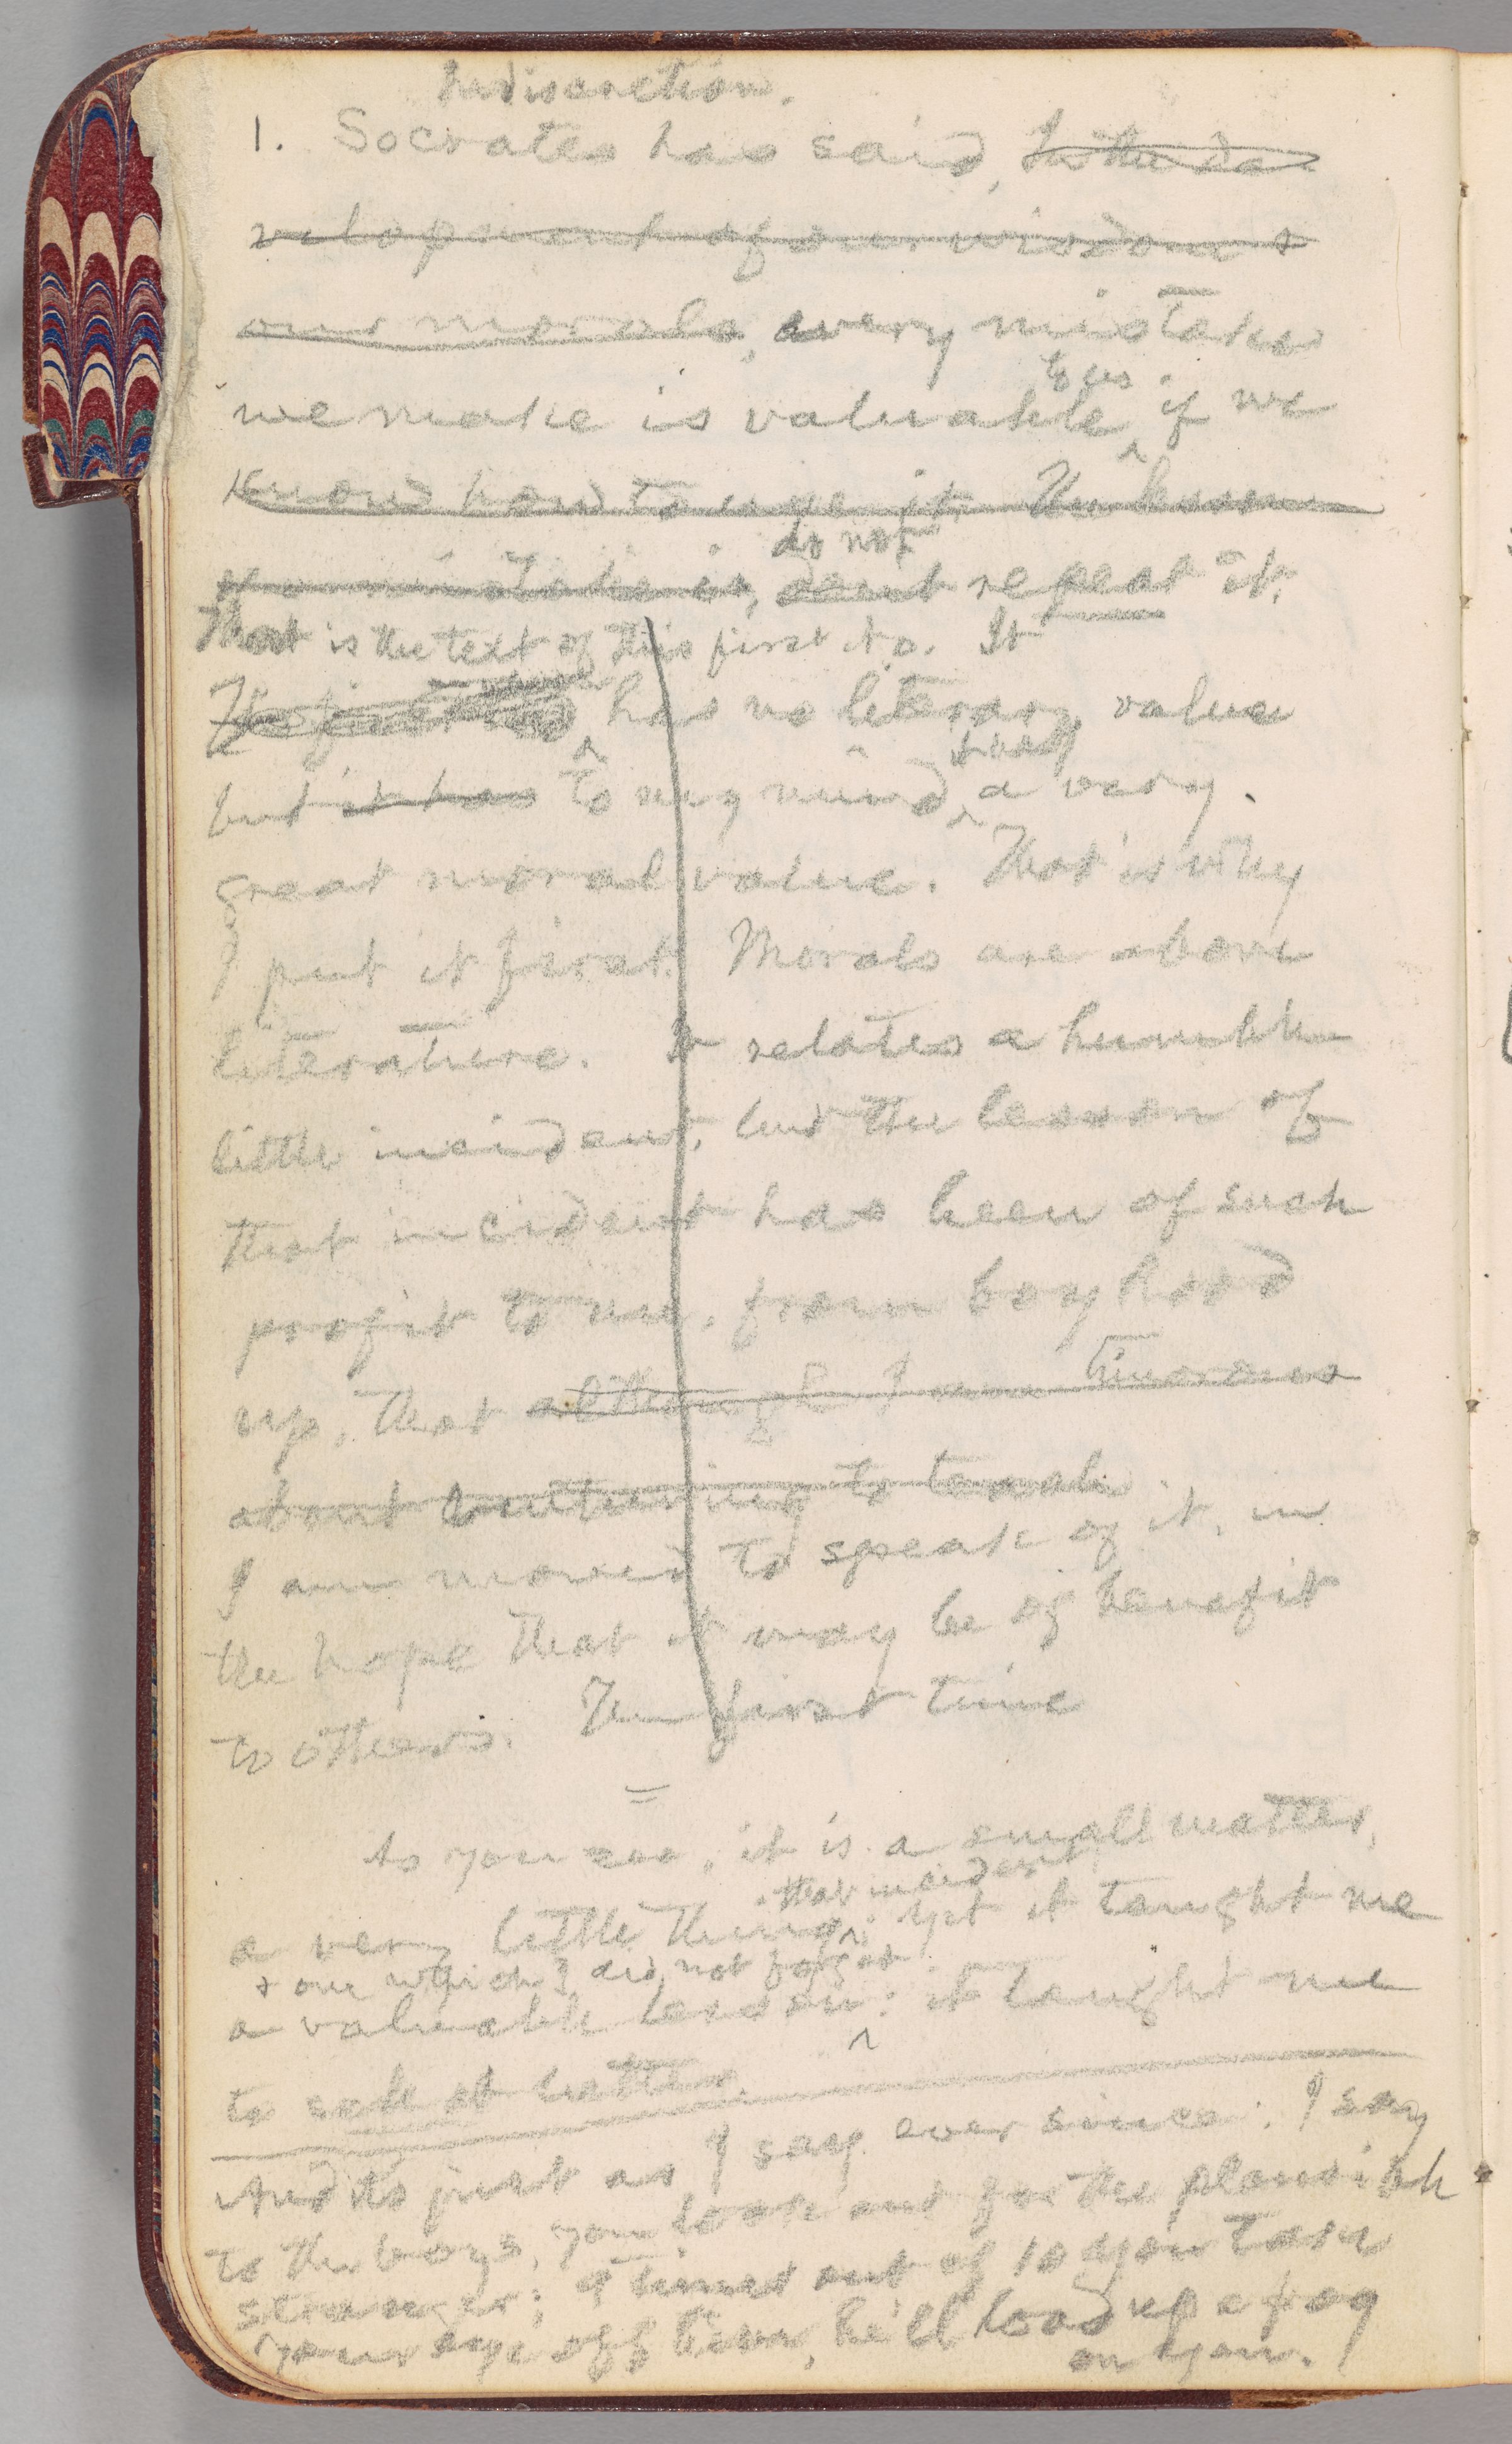 Indiscretion.
1. Socrates has said, In the de-
velopment of our wisdom &
our morals, every mistake
to us
we make is valuable if we
know how to use it. The lesson
do not
of a mistake is, don't repeat it.
That is the text of this first No. It
The first has no literary value
but it has to my mind, a very
great moral value. That is why
I put it first. Morals are above
literature. It relates a humble
little incident, but the lesson of
that incident has been of such
profit to me, from boyhood
up, that although I am timorous
about venturing to teach
I am moved to speak of it, in
the hope that it may be of benefit
to others. The first time
As you see, it is a small matter,
that incident
a very little thing; yet it taught me
& one which I did not forget
a valuable lesson: it taught me
to
And it's just as I say ever since: I say
to the boys, you look out for the plausible
stranger; 9 times out of 10 you take
your eye off him, he'll load up a frog
on you.